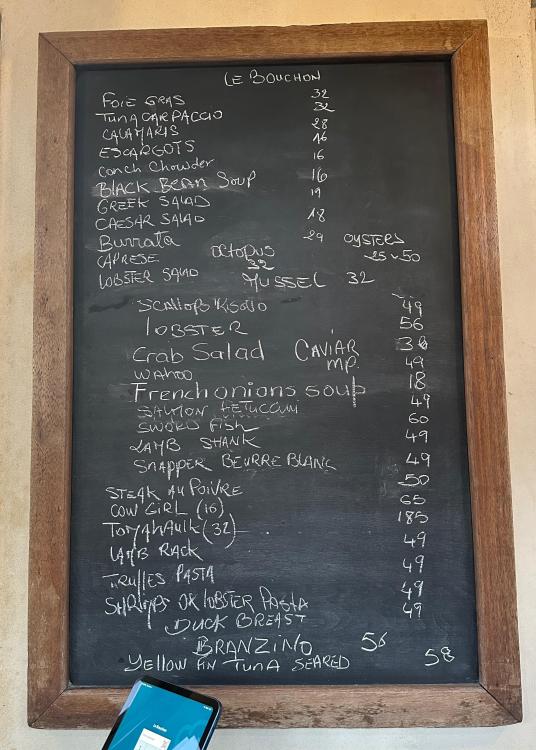 LE BOUCHON
FOIE GRAS 32
TUNA CARPACCIO 32
CALAMARIS 28
ESCARGOTS 16
Conch Chowder 16
BLACK BEAN SOUP 16
GREEK SALAD 19
CAESAR SALAD 18
Burrata 29 OYSTERS
CAPRESE OCTOPUS 25 50
LOBSTER SALAD 32 MUSSEL 32
SCALLOPS RISOTTO 49
LOBSTER 56
Crab Salad CAVIAR 38
WAHOO MP. 49
French onions soup 18
SALMON FETUCCINI 49
SWORD FISH 60
LAMB SHANK 49
SNAPPER BEURRE BLANC 49
STEAK AU POIVRE 50
COW GIRL (16) 65
TOMAHAULK (32) 185
LAMB RACK 49
TRUFFLES PASTA 49
SHRIMPS OR LOBSTER PASTA 49
DUCK BREAST 49
BRANZINO 56
YELLOW FIN TUNA SEARED 58